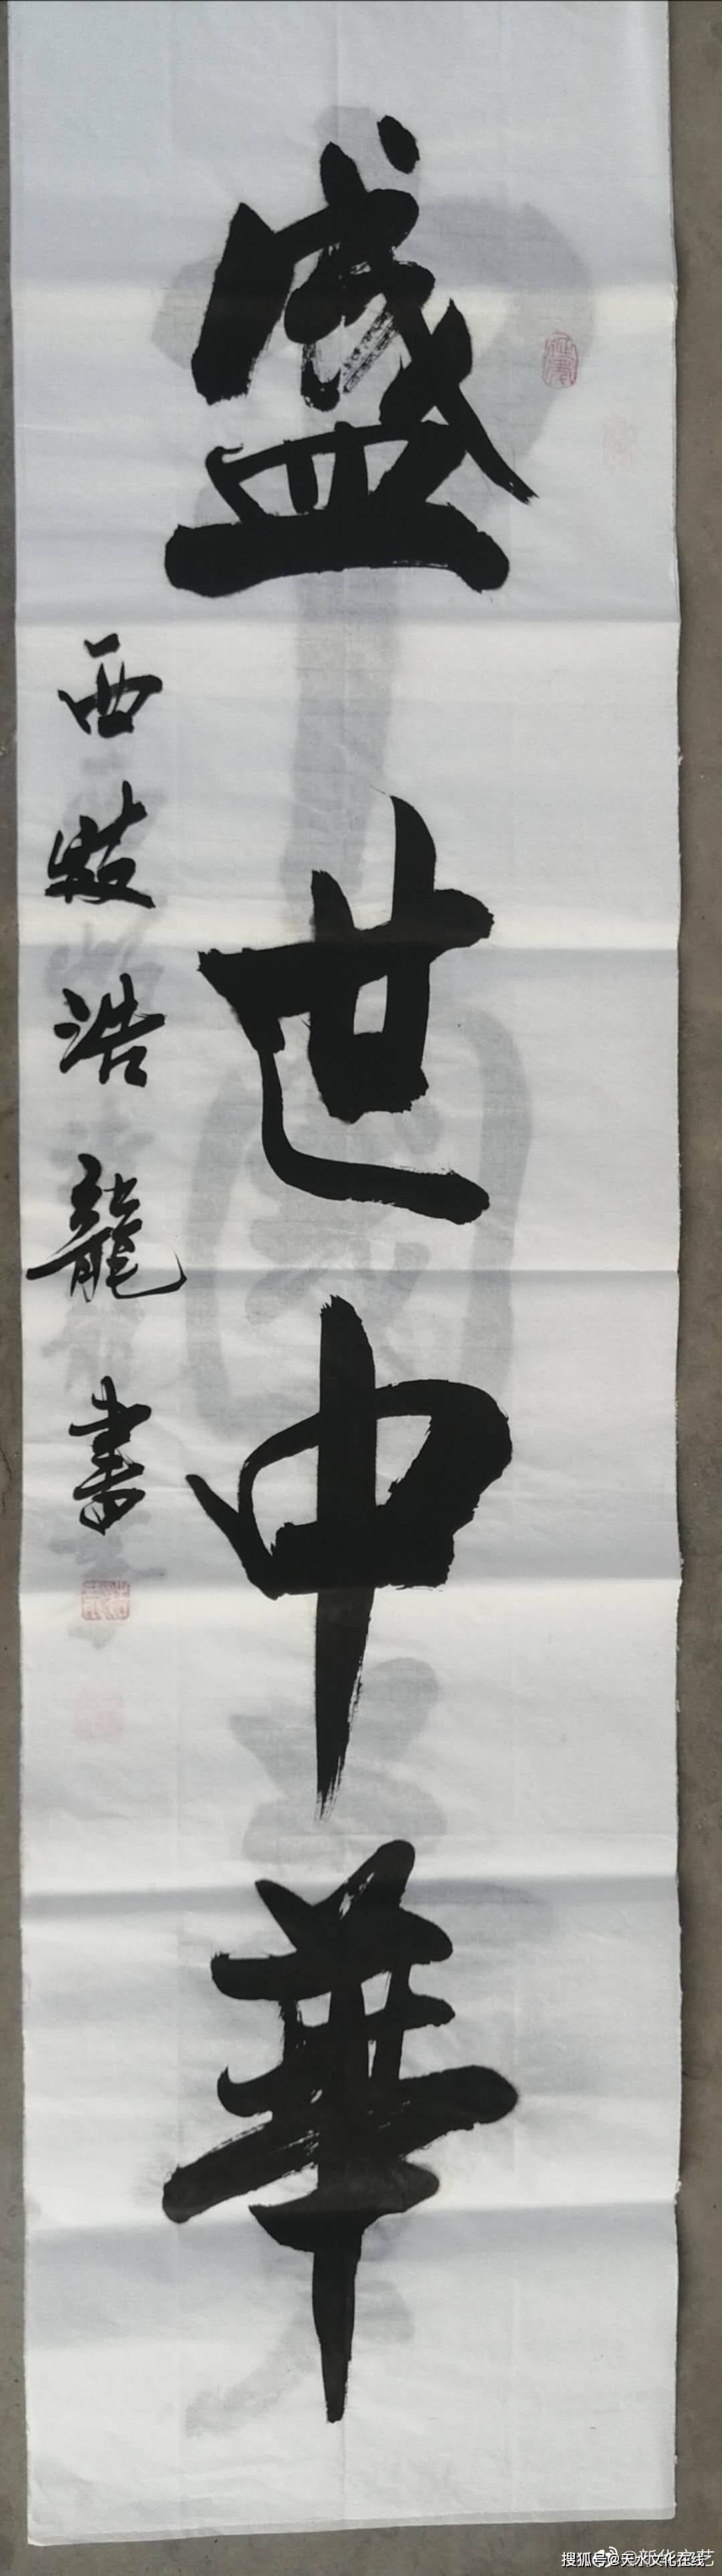 盛世中華
西岐浩龍書
搜狐号@天水文化在线
@新华文艺